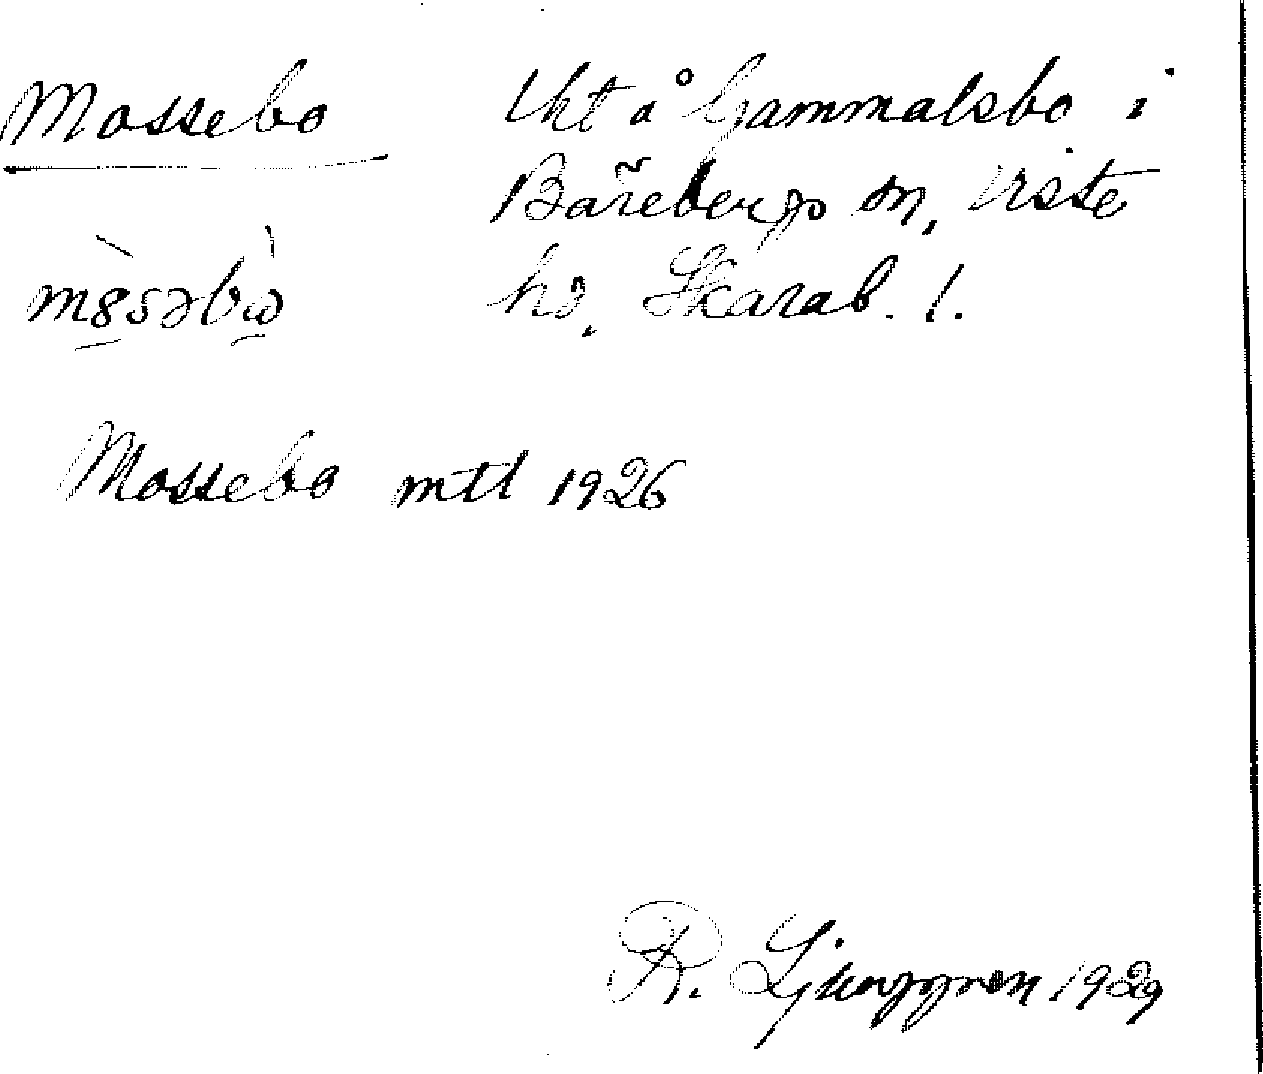 Mossebo
Ukt å Gammalsbo i
Bärebergs sn, Viste
hd, Skarab. !.
Mossebo mtl 1926
R. Ljunggren 1929